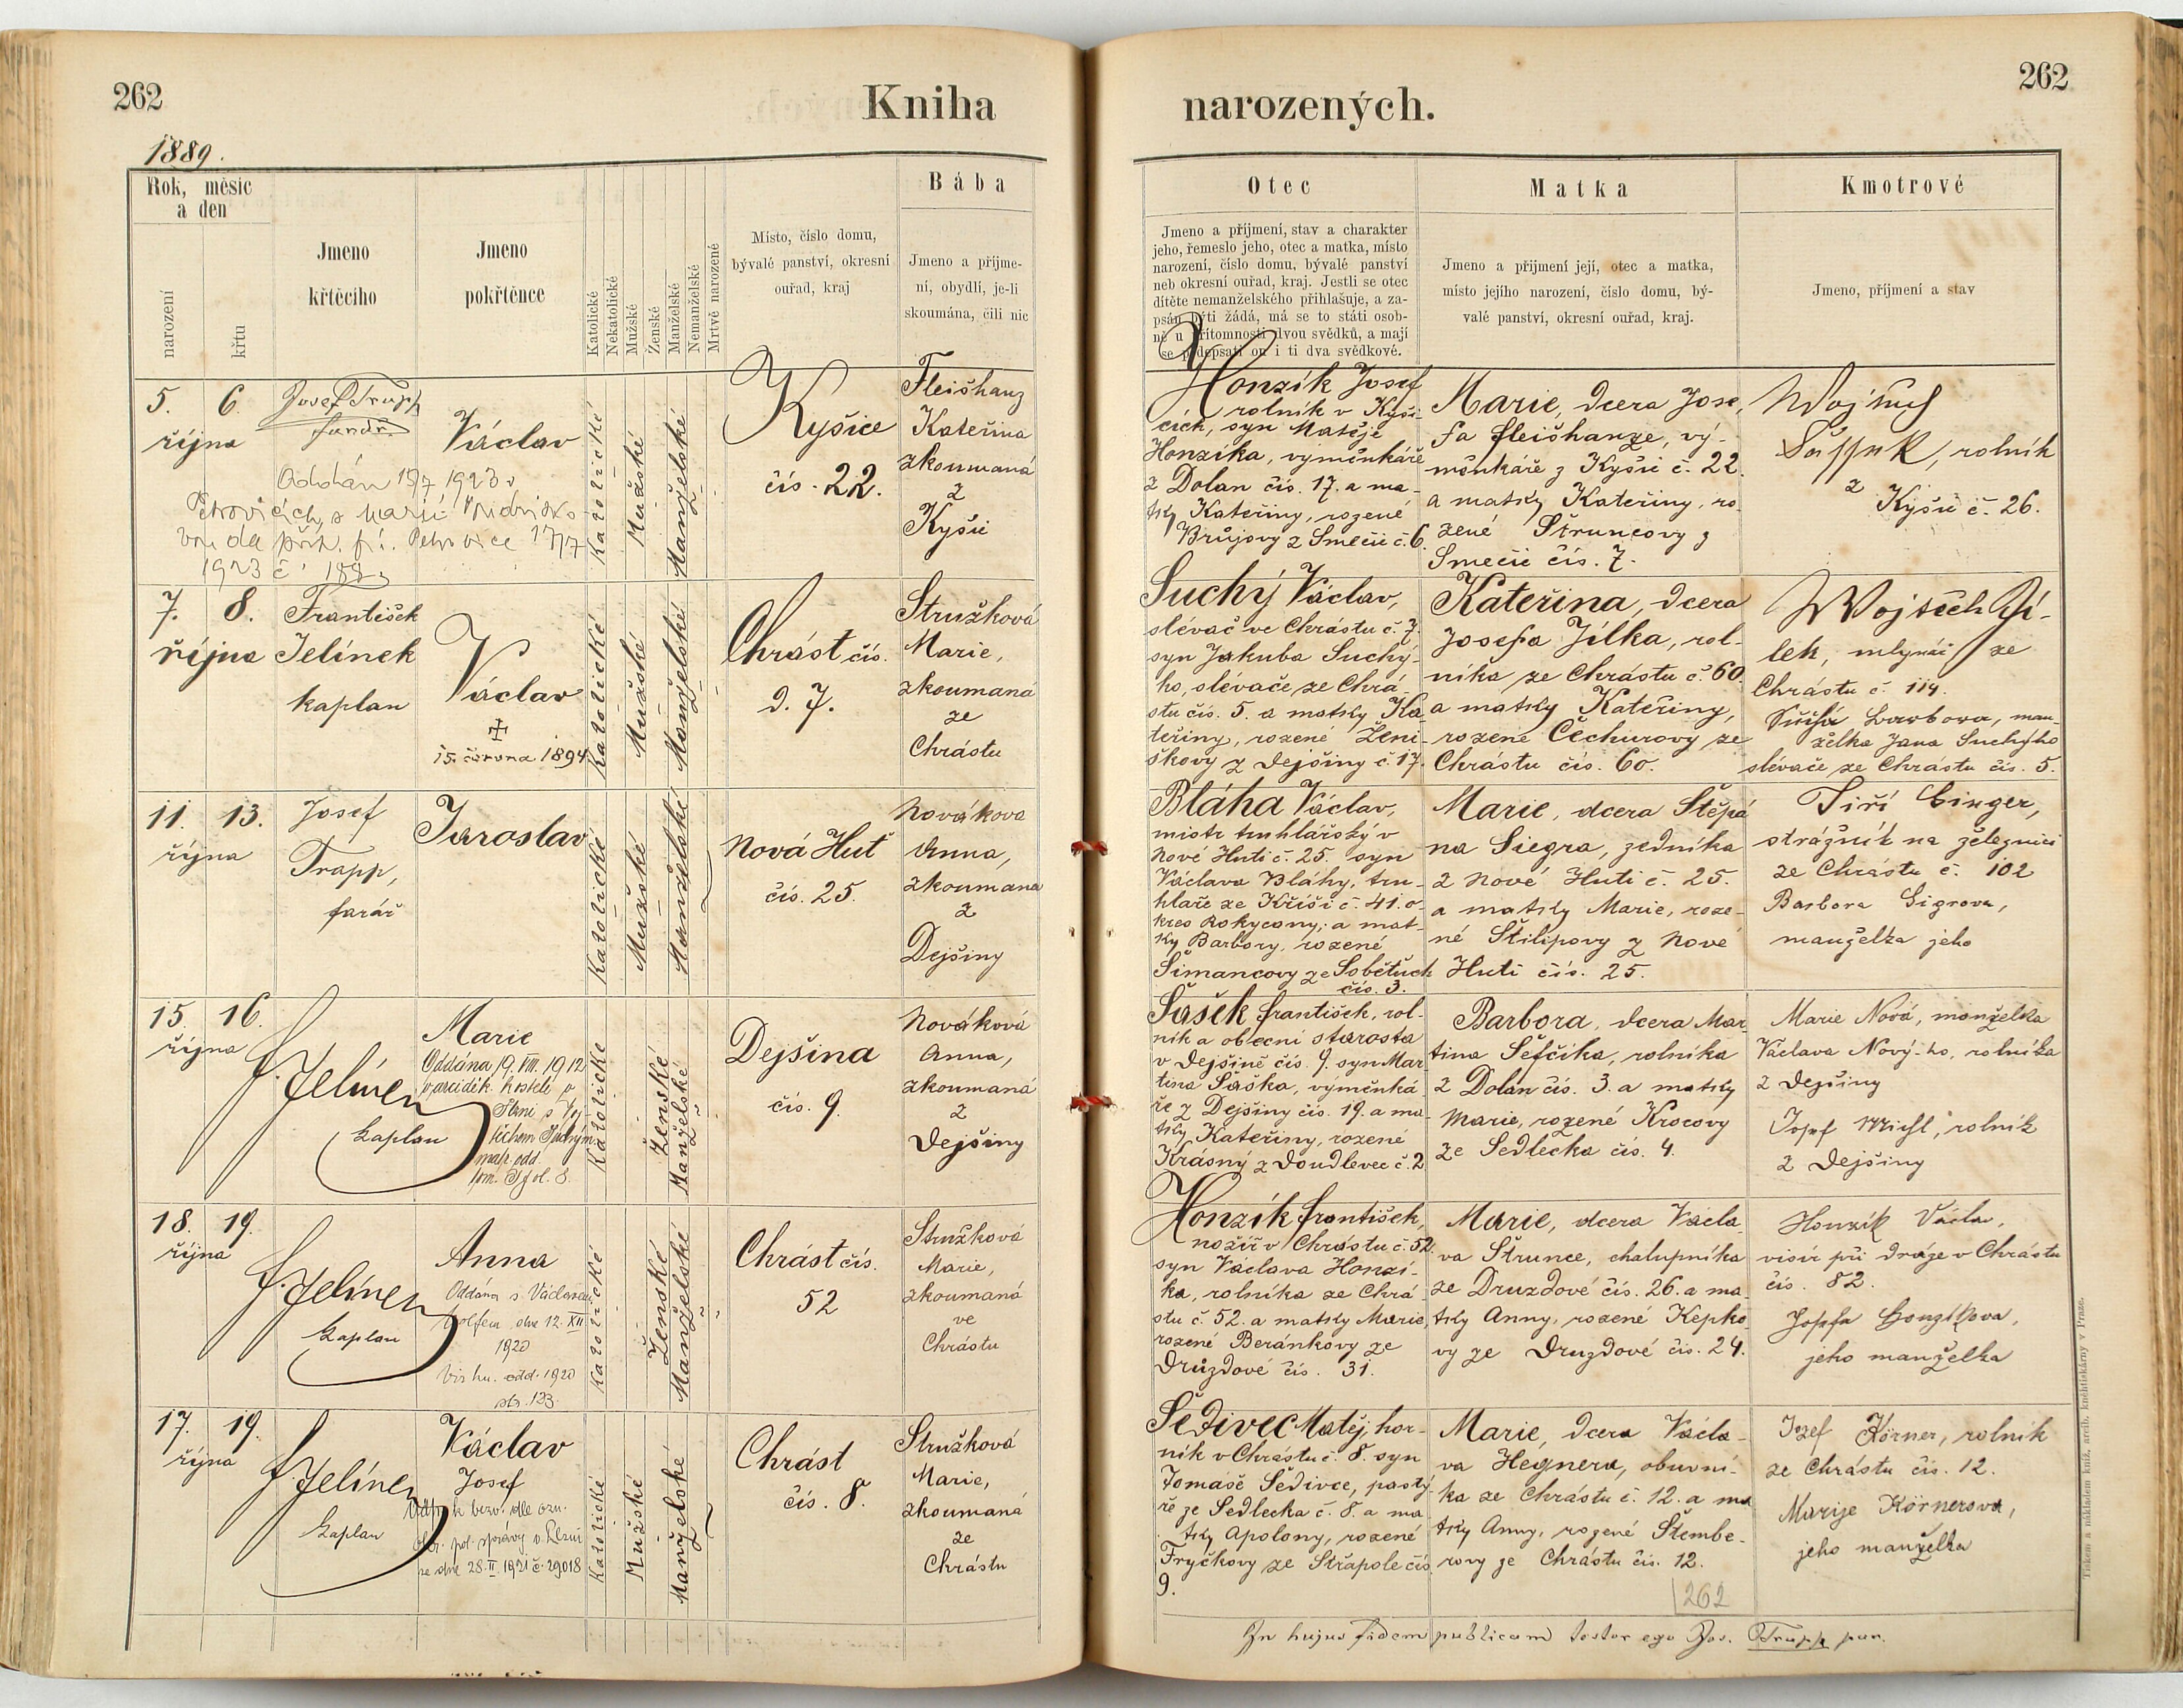 262
Kniha
narozených.
262
1889.
Rok, měsíc
a den
narození
křtu
Jmeno
křtěcího
Jmeno
pokřtěnce
Katolické
Nekatolické
Mužské
Ženské
Manželské
Nemanželské
Mrtvě narozené
Místo, číslo domu,
bývalé panství, okresní
ouřad, kraj
Bába
Jmeno a příjme-
ní, obydlí, je-li
skoumána, čili nic
Otec
Jmeno a příjmení, stav a charakter
jeho, řemeslo jeho, otec a matka, místo
narození, číslo domu, bývalé panství
neb okresní ouřad, kraj. Jestli se otec
dítěte nemanželského přihlašuje, a za-
psán býti žádá, má se to státi osob-
ně u přítomnosti dvou svědků, a mají
se podepsati on i ti dva svědkové.
Matka
Jmeno a přijmení její, otec a matka,
místo jejího narození, číslo domu, bý-
valé panství, okresní ouřad, kraj.
Kmotrové
Jmeno, příjmení a stav
5. 6.
října
Josef Trapp
farář
Václav
Oddán 17/7 1923 v
Petrovicích s Marií
1923 č. 188
Katolické
Mužské
Manželské
Kyšice
čís. 22.
Fleišhanz
Kateřina
zkoumaná
z
Kyšic
Honzík Josef
rolník v Kyši-
cích, syn Matěje
Honzíka, výměnkáře
z Dolan čís. 17. a ma-
tky Kateřiny, rozené
Brůjovy z Smečic č. 6.
Marie, dcera Jose-
fa Fleišhanze, vý-
měnkáře z Kyšic č. 22.
a matky Kateřiny, ro-
zené Štruncovy z
Smečic čís. 7.
rolník
z
Kyšic č. 26.
7. 8.
října
František
Jelínek
kaplan
Václav
15. června 1894
Katolické
Mužské
Manželské
Chrást čís.
d. 7.
Stružková
Marie,
zkoumaná
ze
Chrástu
Suchý Václav,
slévač ve Chrástu č. 7.
syn Jakuba Suchý-
ho, slévače ze Chrá-
stu čís. 5. a matky Ka-
teřiny, rozené Ženi-
škovy z Dejšiny č. 17.
Kateřina, dcera
Josefa Jílka, rol-
níka ze Chrástu č. 60.
a matky Kateřiny,
rozené Čechurovy ze
Chrástu čís. 60.
Wojtěch Jí-
lek, mlynář ze
Chrástu č. 114.
Suchá Barbora, man-
želka Jana Suchýho
slévače ze Chrástu čís. 5.
11. 13.
října
Josef
Trapp,
farář
Jaroslav
Katolické
Mužské
Manželské
Nová Huť
čís. 25.
Nováková
Anna,
zkoumaná
z
Dejšiny
Bláha Václav,
mistr truhlářský v
Nové Huti č. 25. syn
Václava Bláhy, tru-
hláře ze Kříší č. 41. o-
kres Rokycany, a mat-
ky Barbory, rozené
Šimancovy ze Sobětuch
čís. 3.
Marie, dcera Štěpá-
na Siegra, zedníka
z Nové Huti č. 25.
a matky Marie, roze-
né Štilipovy z Nové
Huti čís. 25.
Jiří
strážník na železnici
ze Chrástu č. 102
Barbora
manželka jeho
15. 16.
října
F. Jelínek
kaplan
Marie
Oddána 19. VIII. 1912
v arciděk. kostele v
Plzni s Voj-
těchem
Katolické
Ženské
Manželské
Dejšina
čís. 9.
Nováková
Anna,
zkoumaná
z
Dejšiny
Šašek František, rol-
ník a obecní starosta
v Dejšině čís. 9. syn Mar-
tina Šaška, výměnká-
ře z Dejšiny čís. 19. a ma-
tky Kateřiny, rozené
Krásný z Doudlevec č. 2
Barbora, dcera Mar-
tina Šefčíka, rolníka
z Dolan čís. 3. a matky
Marie, rozené Krocovy
ze Sedlečka čís. 4.
Marie Nová, manželka
Václava Nový-ho, rolníka
z Dejšiny
Josef Michl, rolník
z Dejšiny
18. 19.
října
F. Jelínek
kaplan
Anna
Oddána s Václavem
Wolfem dne 12. XII
1920
Viz kn. odd. 1920
str. 123.
Katolické
Ženské
Manželské
Chrást čís.
52
Stružková
Marie,
zkoumaná
ve
Chrástu
Honzík František,
nožíř v Chrástu č. 52.
syn Václava Honzí-
ka, rolníka ze Chrá-
stu č. 52. a matky Marie,
rozené Beránkovy ze
Druzdové čís. 31.
Marie, dcera Václa-
va Štrunce, chalupníka
ze Druzdové čís. 26. a ma-
tky Anny, rozené Kepko-
vy ze Druzdové čís. 24.
Honzík Václav,
visír při dráze v Chrástu
čís. 82.
Josefa Honzíkova,
jeho manželka
17. 19.
října
F. Jelínek
kaplan
Václav
Josef
k bezv. dle ozn.
pol. správy v Plzni
ze dne 28. II. 1921 č. 29018
Katolické
Mužské
Manželské
Chrást
čís. 8.
Stružková
Marie,
zkoumaná
ze
Chrástu
Šedivec Matěj, hor-
ník v Chrástu č. 8. syn
Tomáše Šedivce, pastý-
ře ze Sedlecka č. 8. a ma-
tky Apolony, rozené
Fryčkovy ze Střapole čís.
9.
Marie, dcera Václa-
va Hegnera, obuvní-
ka ze Chrástu č. 12. a ma-
tky Anny, rozené Štembe-
rovy ze Chrástu čís. 12.
Jozef Körner, rolník
ze Chrástu čís. 12.
Marije Körnerova,
jeho manželka
262
In hujus fidem publicam testor ego Jos. Trapp par.
Tiskem a nákladem kníž. arcib. knihtiskárny v Praze.